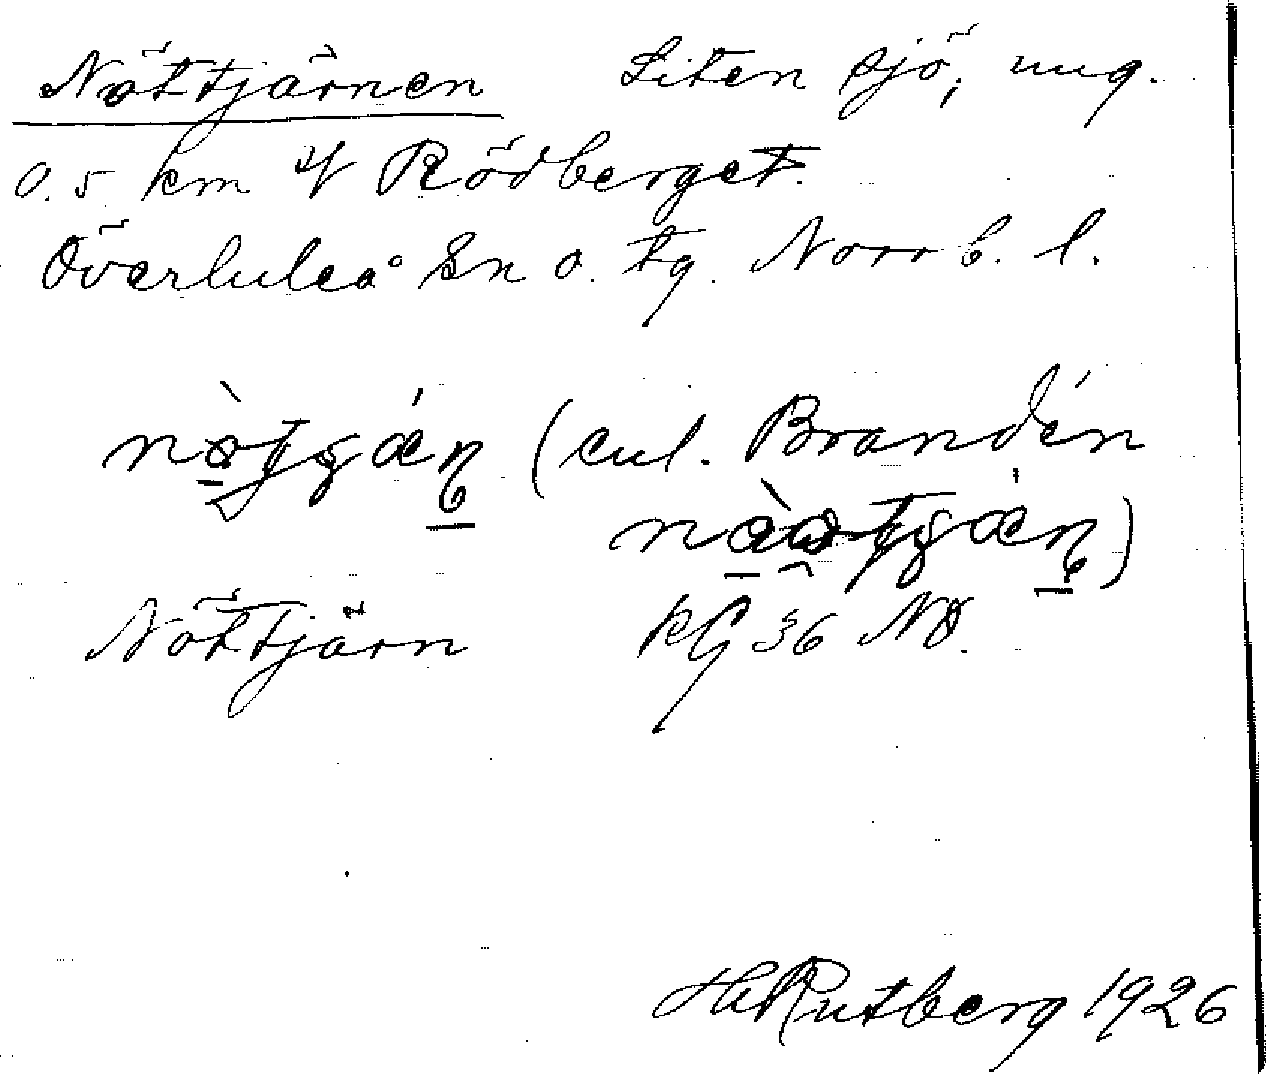 Nöttjärnen Liten sjö, ung.
0.5 km V Rödberget.
Överluleå sn o. tg. Norrb. l.
(enl. Brandén
Nöttjärn kG 36 NO.
H Rutberg 1926